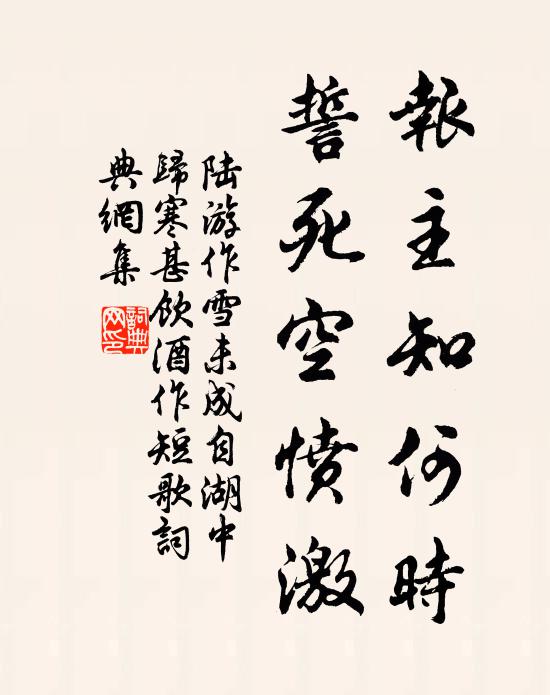 報主知何時
誓死空憤激
陆游作雪未成自湖中
歸寒甚飲酒作短歌詞
典網集
詞典网印